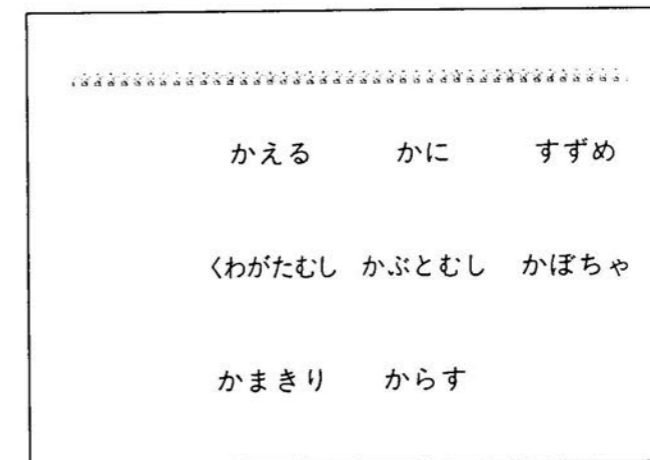 かえる かに すずめ
くわがたむし かぶとむし かぼちゃ
かまきり からす